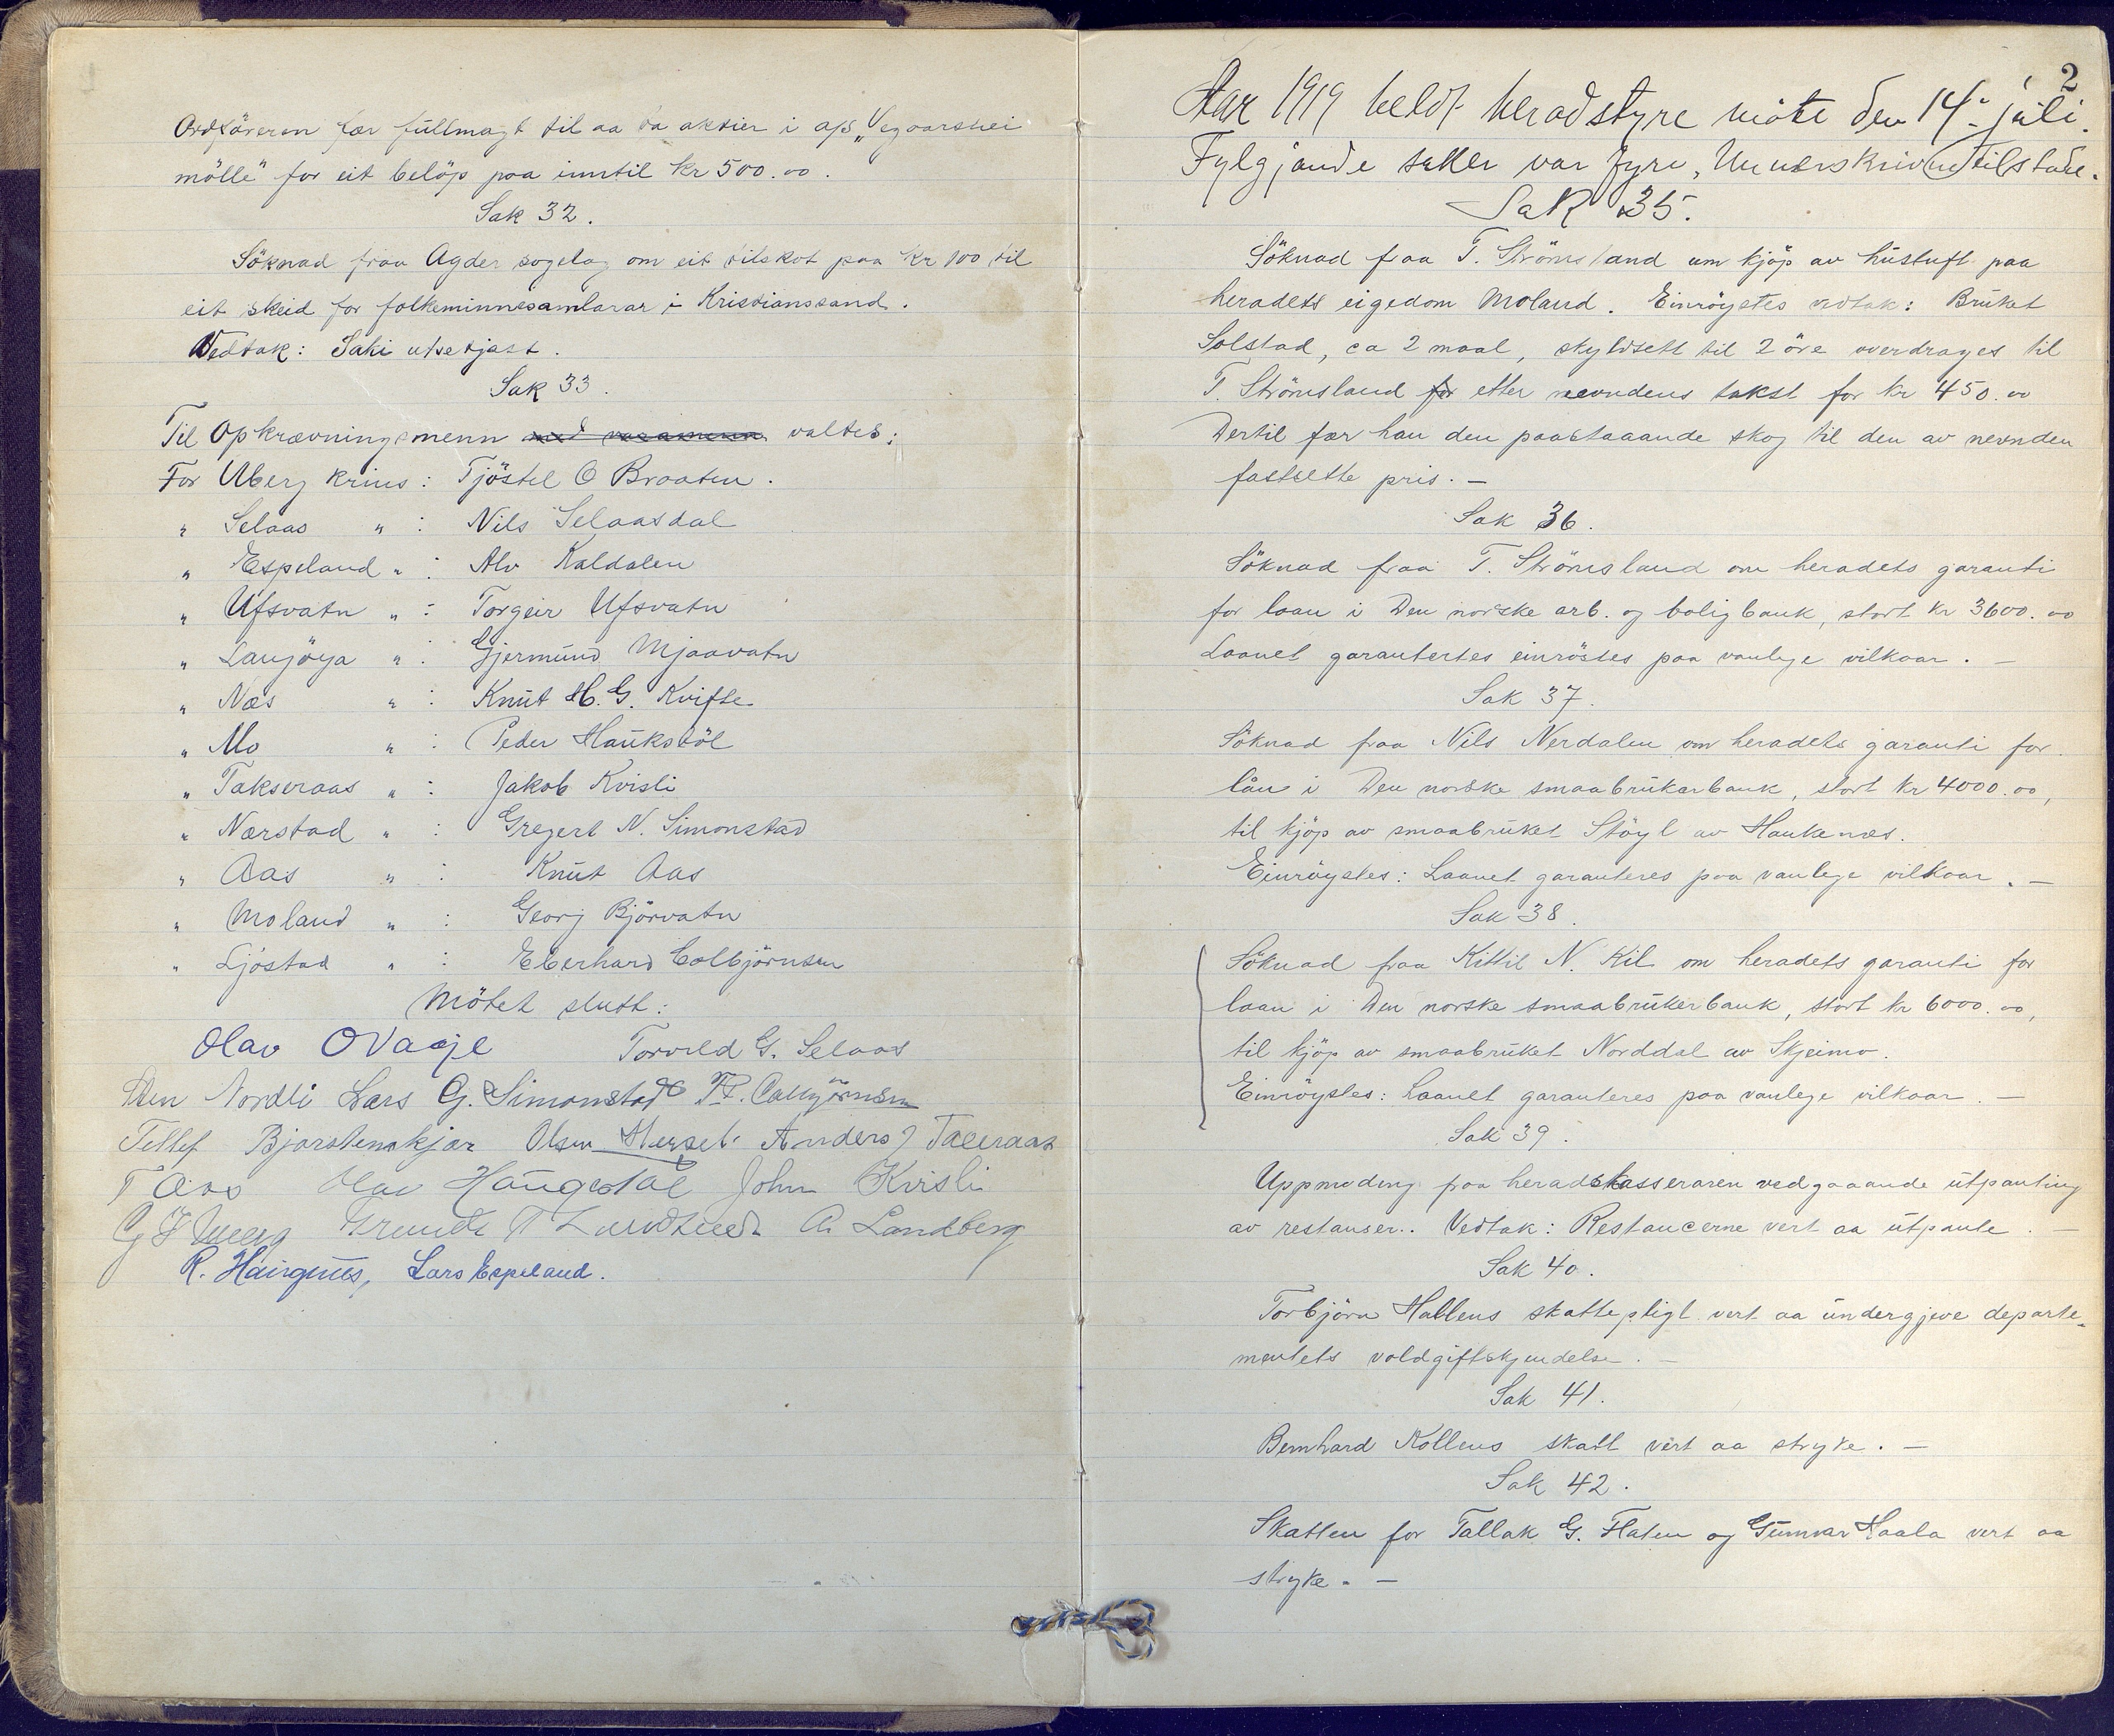 Ordföreren fær fullmagt til aa ta aktier i a/s „Vegaarshei
mölle" for eit belöp paa inntil kr 500.00.
Sak 32.
Söknad fraa Agder sogelag om eit tilskot paa kr 100 til
eit skeid for folkeminnesamlarar i Kristianssand.
Vedtak: Saki utsetjast.
Sak 33.
Til Opkrævningsmenn med varamenn valtes:
For Uberg krins: Tjöstel O Braaten.
" Selaas " : Nils Selaasdal
" Espeland " : Alv Kaldalen
" Ufsvatn " : Torgeir Ufsvatn
" Lauvöya " : Gjermund Mjaavatn
" Næs " : Knut H. G. Kvifte
" Mo " : Peder Hauksböl
" Takseraas " : Jakob Kvisli
" Nærstad " : Gregert N. Simonstad
" Aas " : Knut Aas
" Moland " : Georg Björvatn
" Ljöstad " : Eberhard Colbjörnsen
Mötet slutt:
Olav O Vaaje Torvild G. Selaas
Sten Nordli Lars G. Simonstad
Tellef Bjorstemskjær Olsen Anders J Taxeraas
T Aas Olav Haugestøl John Kvisli
A. Landberg
R. Haugenes, Lars Espeland.
2
Aar 1919 heldt heradstyre möte den 14. juli.
Fylgjande saker var fyre, Underskrivne tilstade.
Sak 35.
Söknad fraa T. Strömsland um kjöp av hustuft paa
heradets eigedom Moland. Einröystes vedtak: Bruket
Solstad, ca 2 maal, skyldsett til 2 öre overdrages til
T. Strömsland for etter nevndens takst for kr 450.00
Dertil fær han den paastaaande skog til den av nevnden
fastsette pris. —
Sak 36.
Söknad fraa T. Strömsland om heradets garanti
for laan i Den norske arb. og boligbank, stort kr 3600.00
Laanet garantertes einröstes paa vanlege vilkaar. —
Sak 37.
Söknad fraa Nils Nerdalen om heradets garanti for
lån i Den norske smaabrukarbank, stort kr 4000.00,
til kjöp av smaabruket Stöyl av Haukenæs.
Einröystes: Laanet garanteres paa vanlege vilkaar. —
Sak 38.
Söknad fraa Kittil N. Kil om heradets garanti for
laan i Den norske smaabrukerbank, stort kr 6000.00,
til kjöp av smaabruket Norddal av Skjeimo.
Einröystes: Laanet garanteres paa vanlege vilkaar. —
Sak 39.
Uppmoding fraa heradskasseraren vedgaaande utpanting
av restanser. Vedtak: Restancerne vert aa utpante. —
Sak 40.
Torbjörn Hallens skattepligt vert aa undergjeve departe-
mentets voldgiftskjendelse. —
Sak 41.
Bernhard Kollens skatt vert aa stryke. —
Sak 42.
Skatten for Tallak G. Flaten og Gunnar Haala vert aa
stryke. —